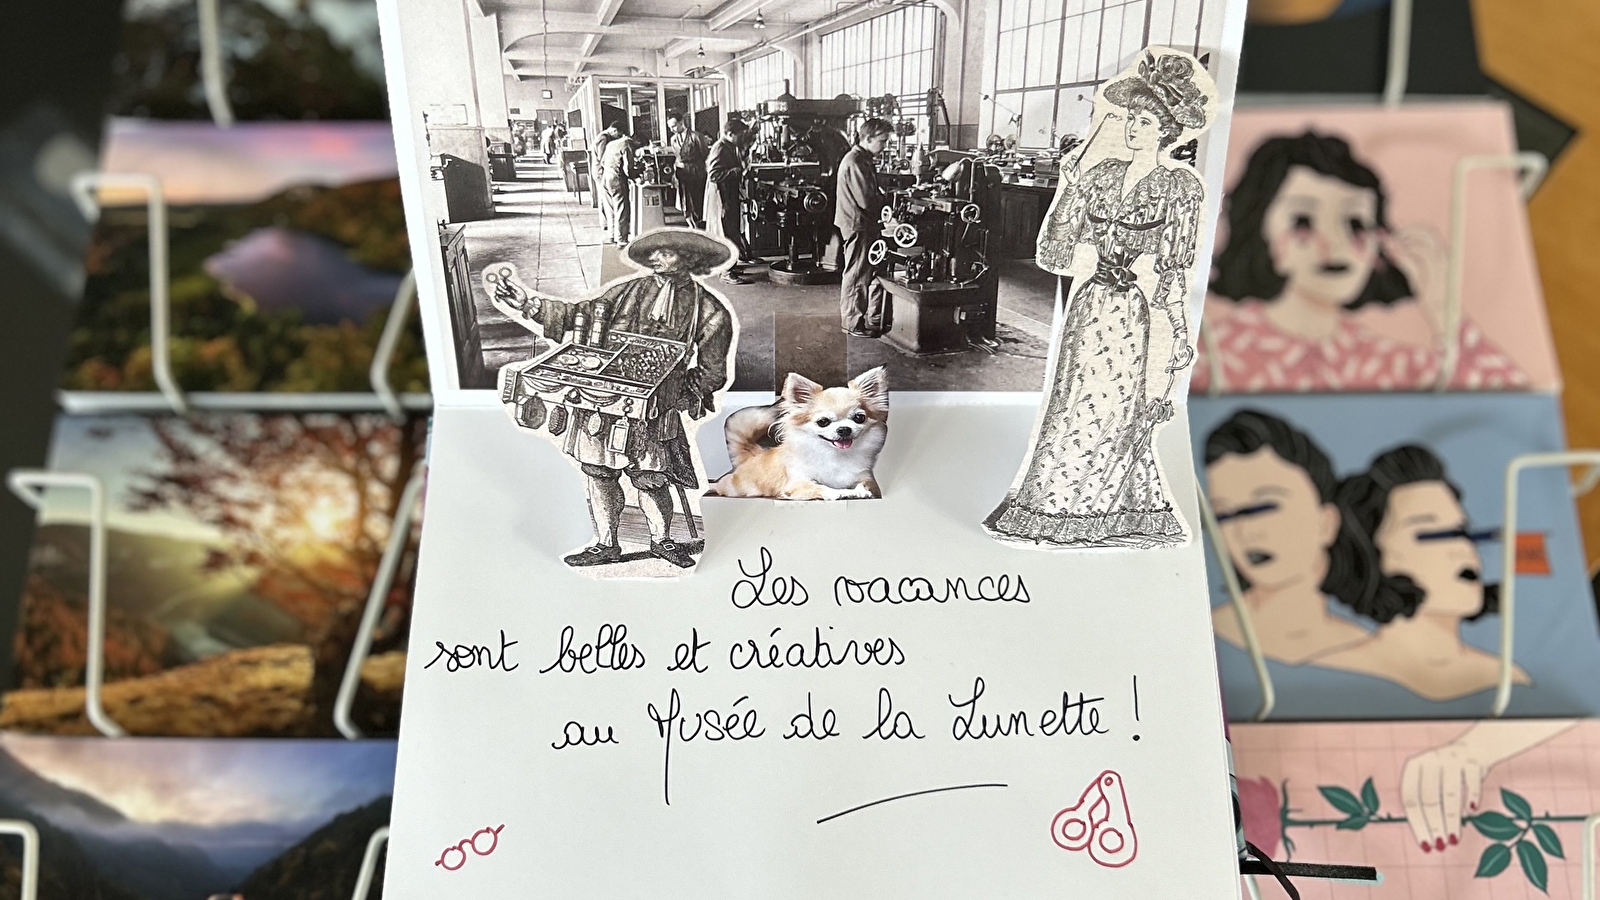 Les vacances
sont belles et créatives
au Musée de la Lunette !